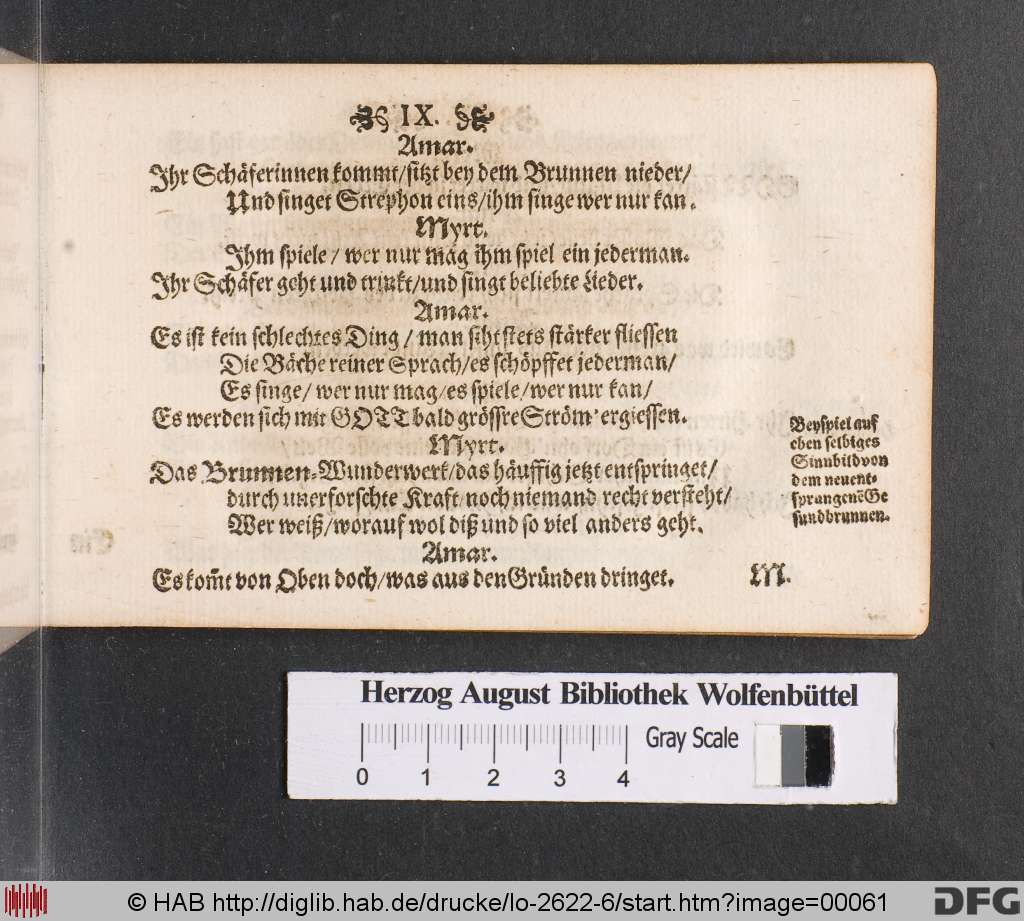 IX.
Amar.
Ihr Schäferinnen kommt/sitzt bey dem Brunnen nieder/
Und singet Strephon eins/ihm singe wer nur kan.
Myrt.
Ihm spiele/ wer nur mag ihm spiel ein jederman.
Ihr Schäfer geht und trinkt/und singt beliebte Lieder.
Amar.
Es ist kein schlechtes Ding/ man siht stets stärker fliessen
Die Bäche reiner Sprach/es schöpffet jederman/
Es singe/ wer nur mag/es spiele/wer nur kan/
Es werden sich mit GOTT bald grössre Ström' ergiessen.
Myrt.
Das Brunnen-Wunderwerk/das häuffig jetzt entspringet/
durch unerforschte Kraft noch niemand recht versteht/
Wer weiß/worauf wol diß und so viel anders geht.
Amar.
Es kom̃t von Oben doch/was aus den Gründen dringet.
M.
Beyspiel auf
eben selbiges
Sinnbild von
dem neuent-
sprungenẽ Ge
sundbrunnen.
Herzog August Bibliothek Wolfenbüttel
0 1 2 3 4
Gray Scale
© HAB http://diglib.hab.de/drucke/lo-2622-6/start.htm?image=00061
DFG